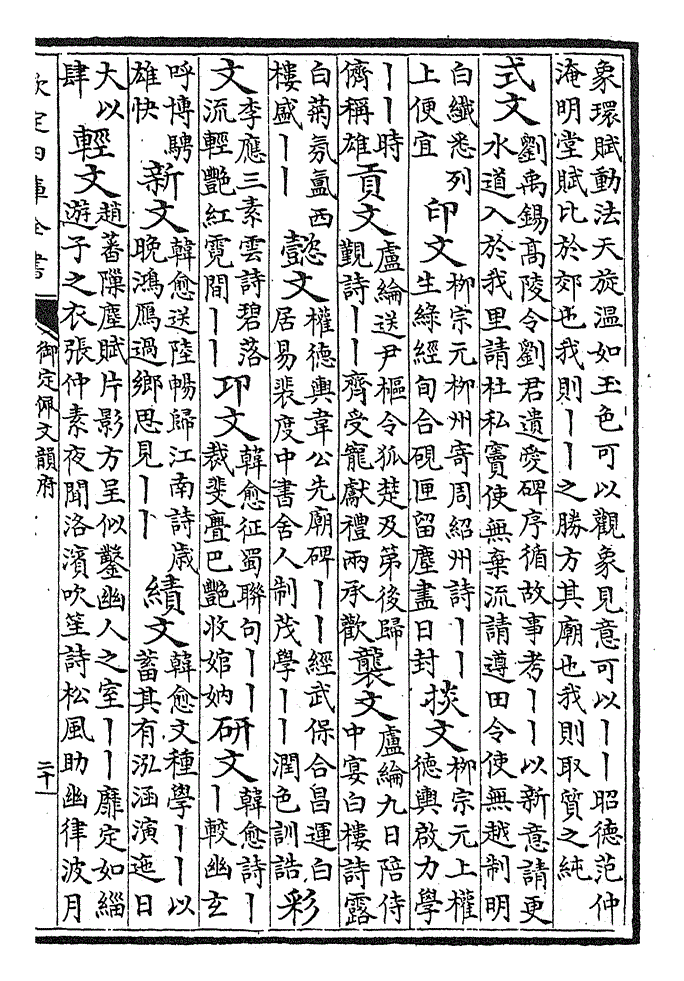 象環賦動法天旋溫如玉色可以觀象見意可以丨丨昭德范仲
淹明堂賦比於郊也我則丨丨之勝方其廟也我則取質之純
式文劉禹錫高陵令劉君遺愛碑序循故事考丨丨以新意請更
水道入於我里請杜私竇使無棄流請遵田令使無越制明
白纖悉列
上便宜
印文柳宗元柳州寄周紹州詩丨丨
生綠經旬合硯匣留塵盡日封
掞文柳宗元上權
德輿啟力學
丨丨時
儕稱雄
貢文盧綸送尹樞令狐楚及第後歸
覲詩丨丨齊受寵獻禮兩承歡
襲文盧綸九日陪侍
中宴白樓詩露
白菊氛氳西
樓盛丨丨
懿文權德輿韋公先廟碑丨丨經武保合昌運白
居易裴度中書舍人制茂學丨丨潤色訓誥
彩
文李應三素雲詩碧落
流輕艷紅霓間丨丨
卭文韓愈征蜀聯句丨丨
裁斐亹巴艷收婠妠
研文韓愈詩丨
丨較幽玄
呼博騁
雄快
新文韓愈送陸暢歸江南詩歲
晚鴻鴈過鄉思見丨丨
績文韓愈文種學丨丨以
蓄其有泓涵演迤日
大以
肆
輕文趙蕃隟塵賦片影方呈似鑿幽人之室丨丨靡定如緇
遊子之衣張仲素夜聞洛濱吹笙詩松風助幽律波月
欽定四庫全書
御定佩文韻府
二十